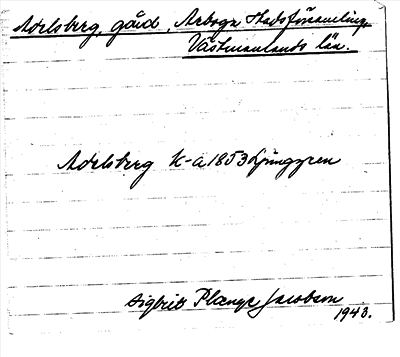 Adelsberg, gård, Arboga Stadsförsamling,
Västmanlands län.
Adelsberg K-a 1853 Ljunggren
Sigbrit Plænge Jacobson
1948.